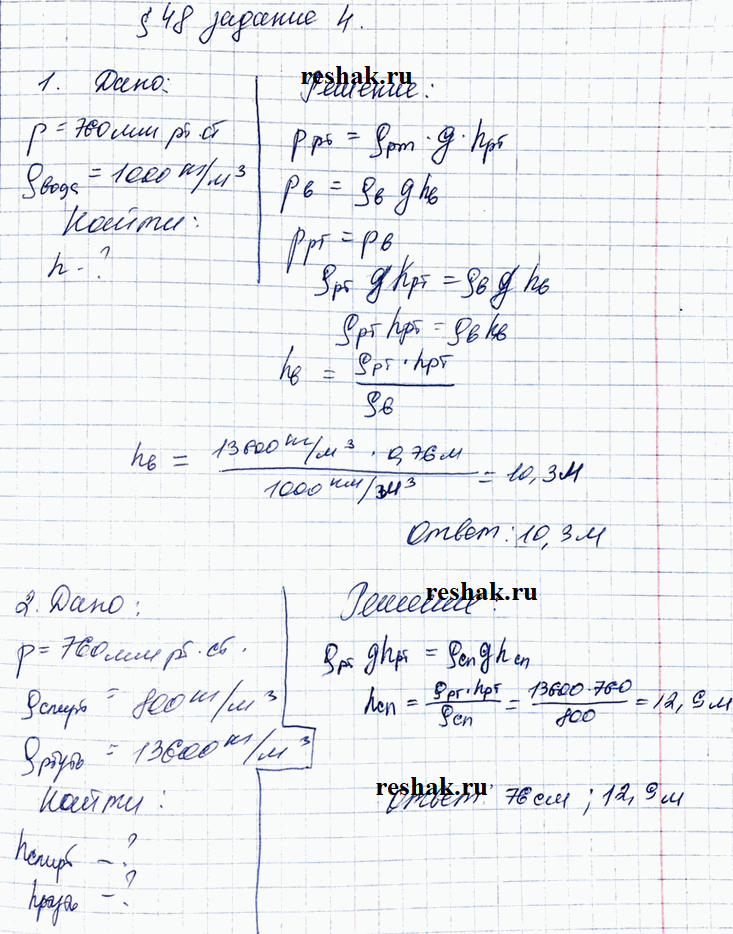 § 48 задание 4.
reshak.ru
1. Дано:
p = 760 мм рт ст
ρвода = 1000 кг/м³
Найти:
h - ?
Решение:
pрт = ρрт · g · hрт
pв = ρв g hв
pрт = pв
ρрт g hрт = ρв g hв
ρрт hрт = ρв hв
hв = ρрт · hрт / ρв
hв = 13600 кг/м³ · 0,76 м / 1000 км/м³ = 10,3 м
Ответ: 10,3 м
2. Дано:
p = 760 мм рт. ст.
ρспирт = 800 кг/м³
ρртуть = 13600 кг/м³
Найти:
hспирт - ?
hртуть - ?
reshak.ru
Решение:
ρрт g hрт = ρсп g hсп
hсп = ρрт · hрт / ρсп = 13600 · 760 / 800 = 12,9 м
reshak.ru
Ответ: 76 см ; 12,9 м